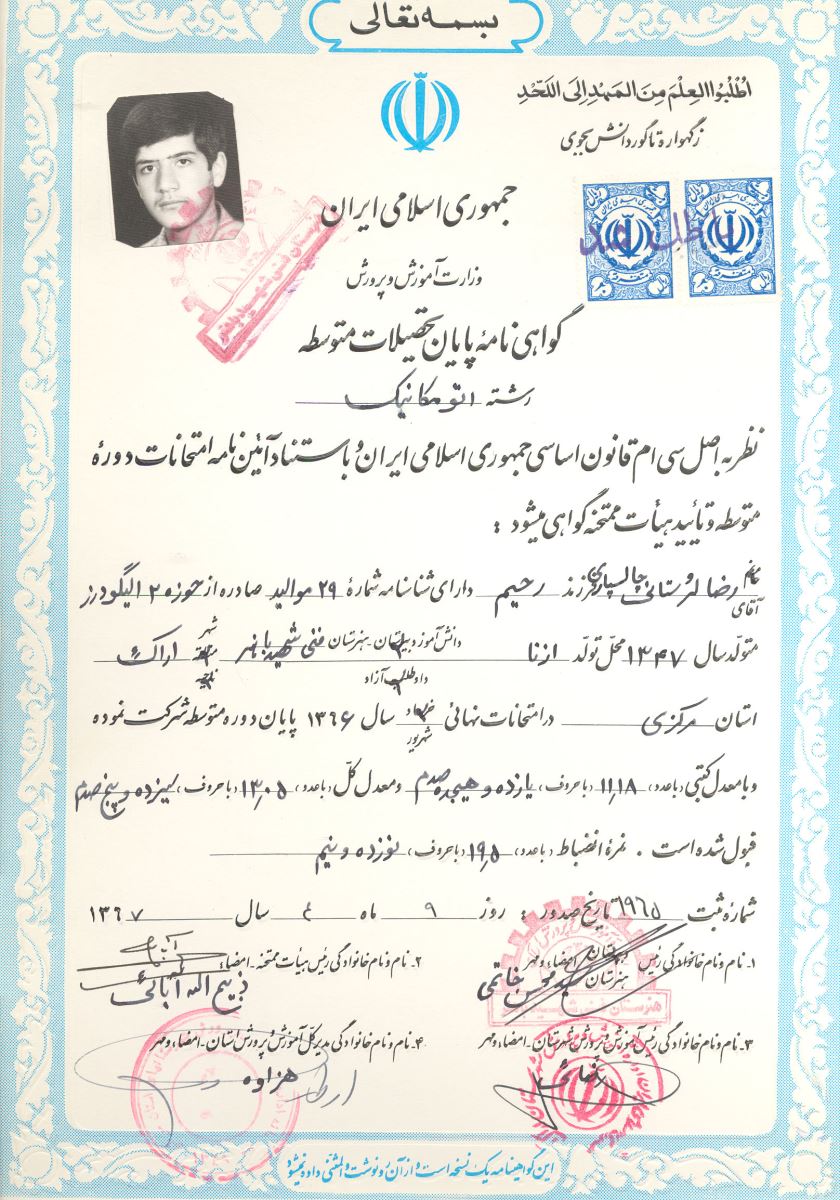 بسمه تعالی
اُطْلُبُوا الْعِلْمَ مِنَ الْمَهْدِ اِلَی اللَّحْدِ
زگهواره تا گور دانش بجوی
جمهوری اسلامی ایران
وزارت آموزش و پرورش
گواهی نامهٔ پایان تحصیلات متوسطه
رشته اتو مکانیک
نظر به اصل سی ام قانون اساسی جمهوری اسلامی ایران و با استناد آئین نامه امتحانات دورهٔ
متوسطه و تأیید هیأت ممتحنه گواهی میشود :
آقای رضا لرستانی چالسپاری فرزند رحیم دارای شناسنامه شمارهٔ ۲۹ موالید صادره از حوزه ۲ الیگودرز
متولد سال ۱۳۴۷ محل تولد ازنا دانش آموز دبیرستان - هنرستان فنی شهید باهنر شهر منطقه ناحیه اراک
داوطلب آزاد
استان مرکزی در امتحانات نهائی خرداد شهریور سال ۱۳۶۶ پایان دوره متوسطه شرکت نموده
و با معدل کتبی (با عدد) ۱۱,۱۸ (با حروف) یازده و هیجده صدم و معدل کل (با عدد) ۱۳,۰۵ (با حروف) سیزده و پنج صدم
قبول شده است . نمرهٔ انضباط (با عدد) ۱۹,۵ (با حروف) نوزده و نیم
شمارهٔ ثبت ۶۹۶۵ تاریخ صدور : روز ۹ ماه ٤ سال ۱۳۶۷
۱- نام و نام خانوادگی رئیس دبیرستان هنرستان امضاء و مهر
محسن خاتمی
۲- نام و نام خانوادگی رئیس هیأت ممتحنه - امضاء
ذبیح اله آبائی
۳- نام و نام خانوادگی رئیس آموزش و پرورش شهرستان - امضاء و مهر
۴- نام و نام خانوادگی مدیر کل آموزش و پرورش استان - امضاء و مهر
هزاوه
این گواهینامه یک نسخه است و از آن رونوشت و المثنی داده نمیشود
باطل شد